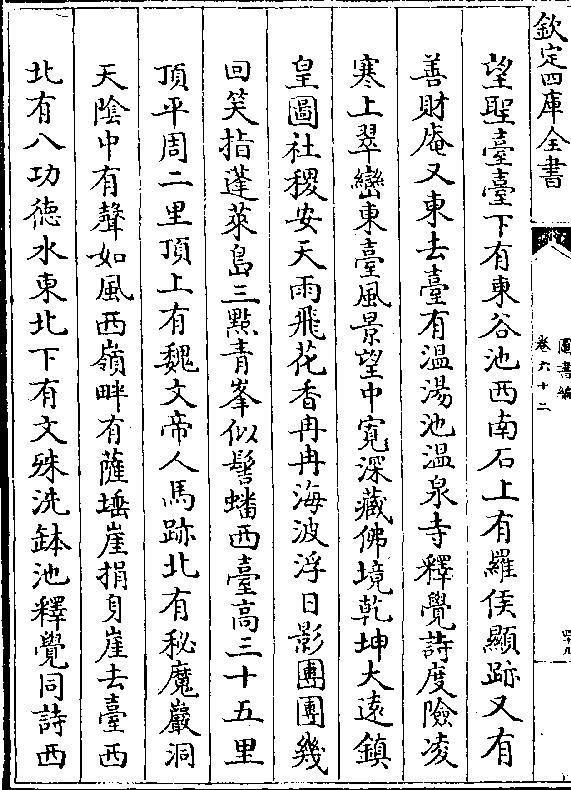 欽定四庫全書
圖書編
卷六十二
望聖臺臺下有東谷池西南石上有羅侯顯跡又有
善財庵又東去臺有温湯池温泉寺釋覺詩度險凌
寒上翠巒東臺風景望中寛深藏佛境乾坤大遠鎮
皇圖社稷安天雨飛花香冉冉海波浮日影團團幾
回笑指蓬萊島三㸃青峯似髻蟠西臺高三十五里
頂平周二里頂上有魏文帝人馬跡北有秘魔巖洞
天陰中有聲如風西嶺畔有薩埵崖捐身崖去臺西
北有八功徳水東北下有文殊洗鉢池釋覺同詩西